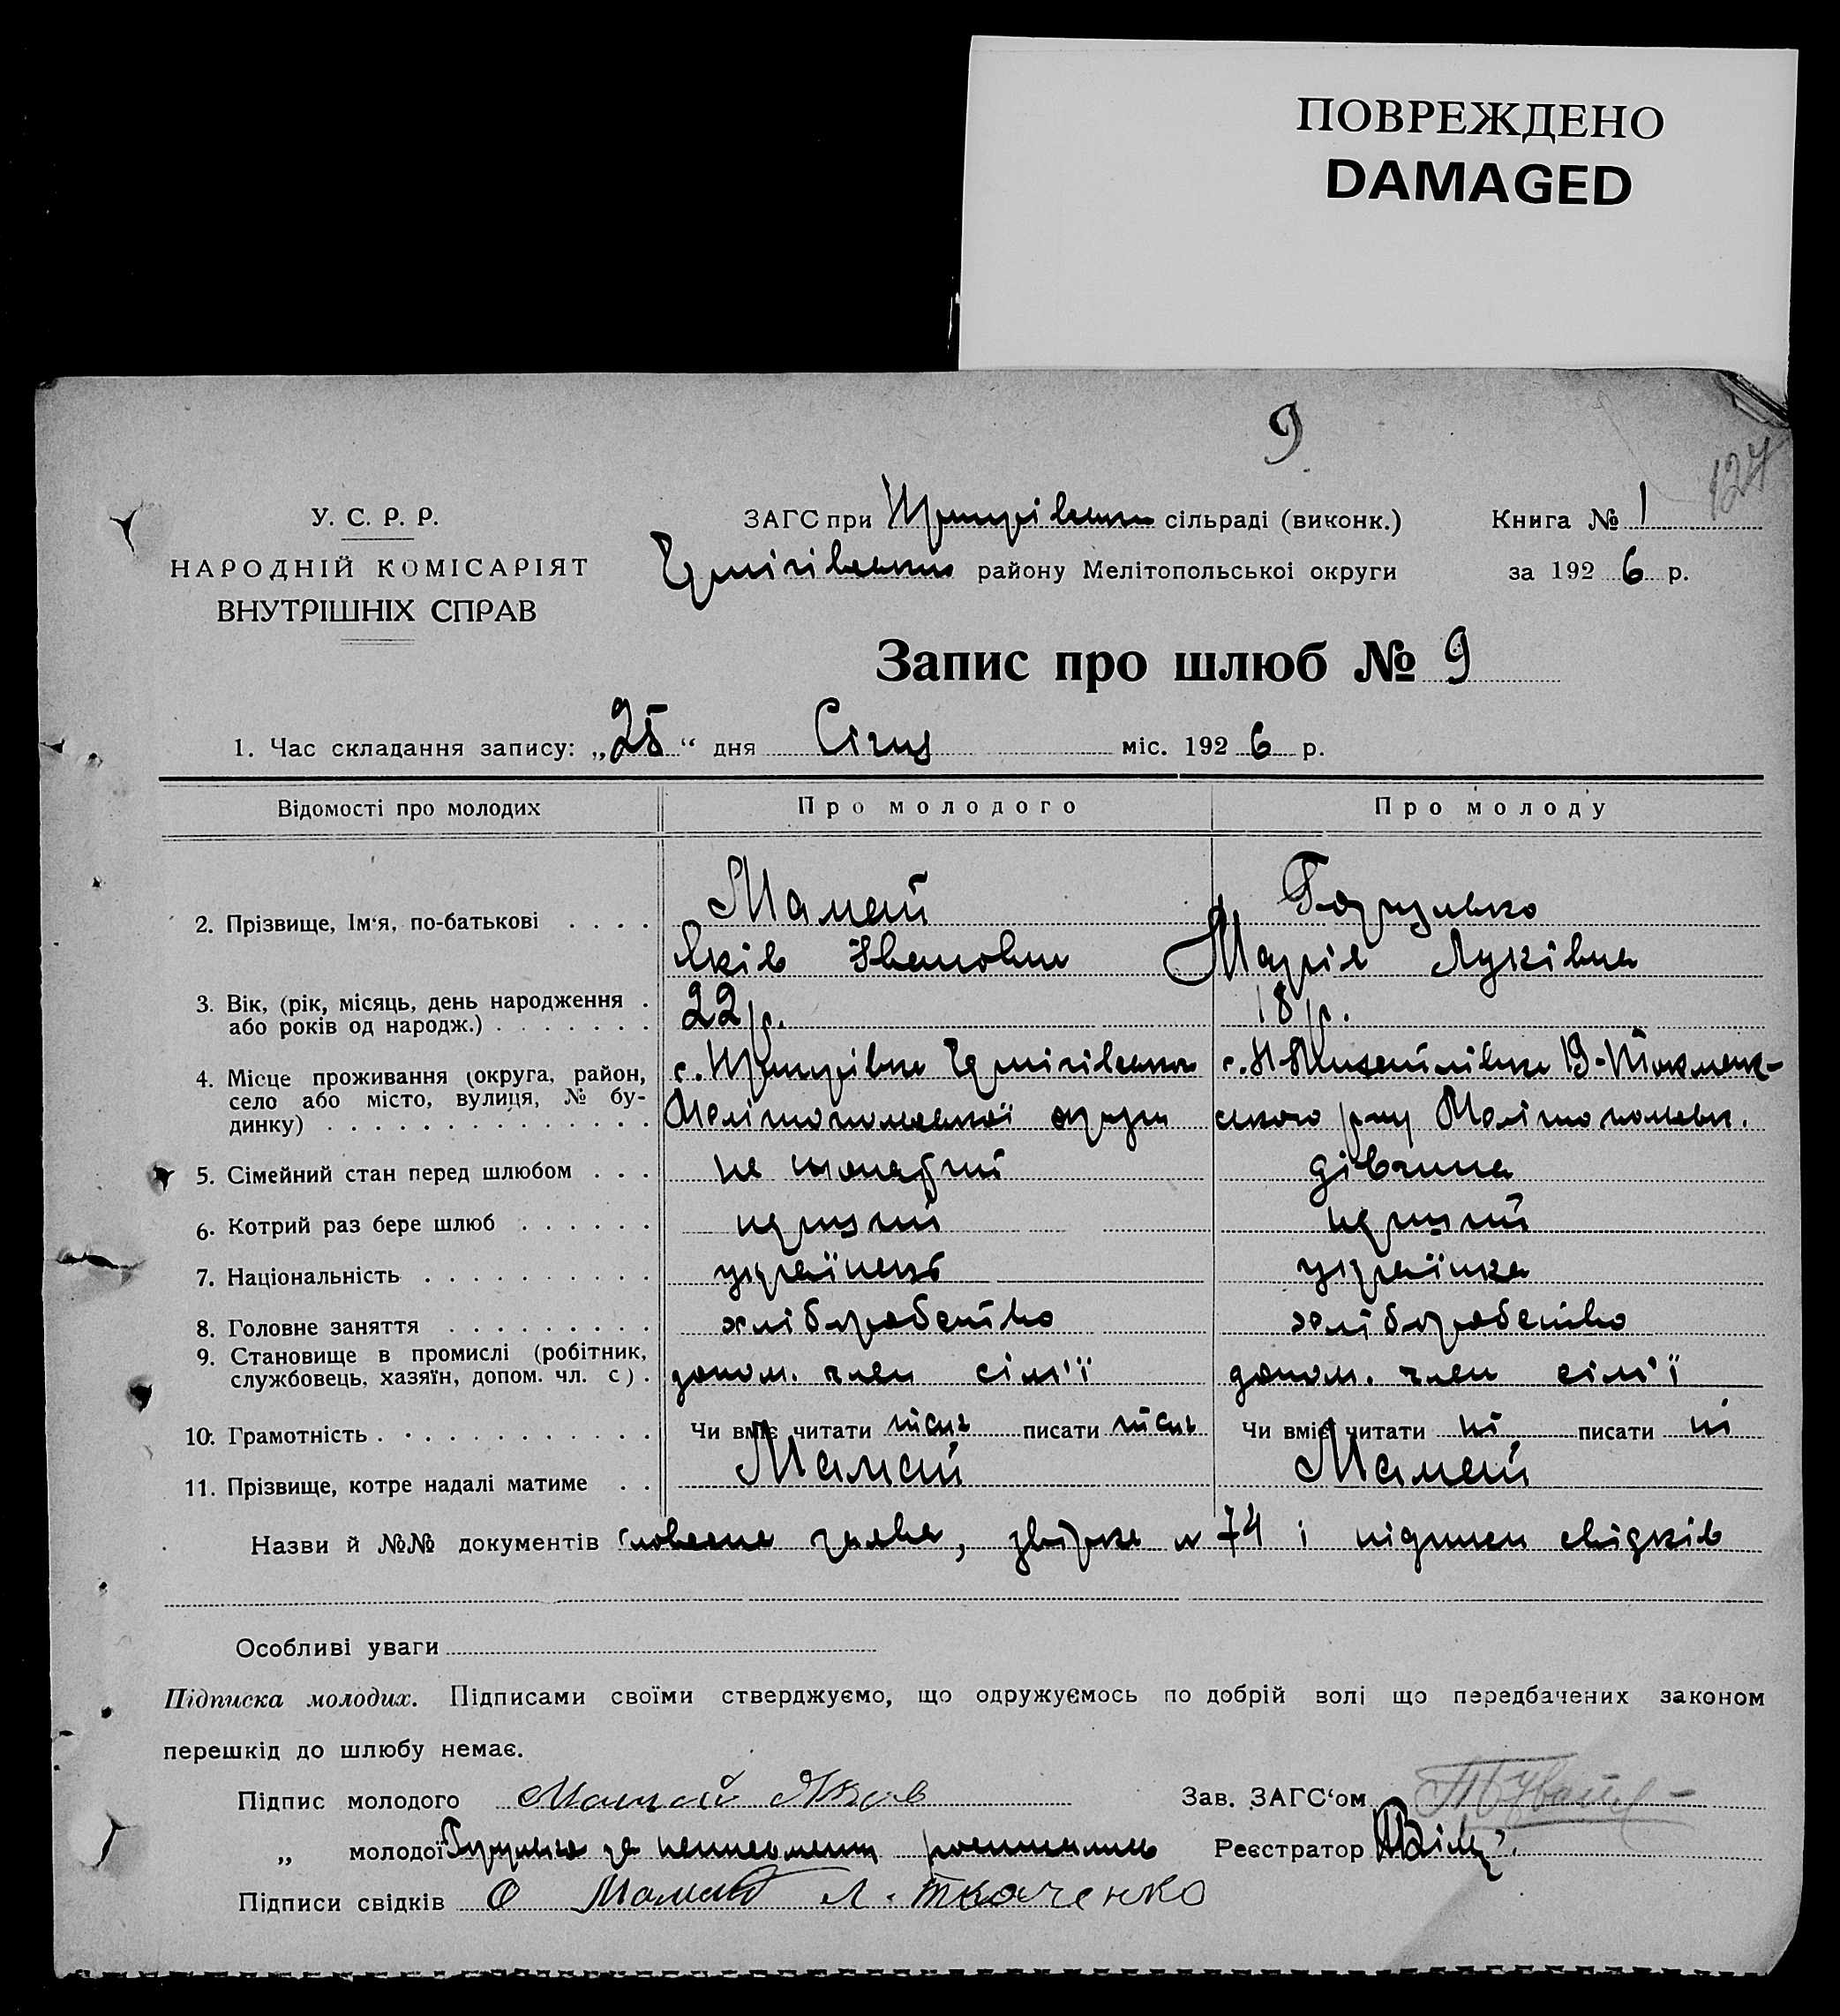 ПОВРЕЖДЕНО
DAMAGED
9
127
У. С. Р. Р.
НАРОДНІЙ КОМІСАРІЯТ
ВНУТРІШНІХ СПРАВ
ЗАГС при сільраді (виконк.)
Книга № 1
Чернігівськім району Мелітопольської округи
за 1926 р.
Запис про шлюб № 9
1. Час складання запису: „25“ дня Січня міс. 1926 р.
Відомості про молодих
Про молодого
Про молоду
2. Прізвище, Ім‘я, по-батькові
Мамай
Яків Іванович
Марія Луківна
3. Вік, (рік, місяць, день народження
або років од народж.)
22 р.
18 р.
4. Місце проживання (округа, район,
село або місто, вулиця, № бу-
динку)
с. Чернігівськ
Мелітопольської округи
с. Н-Михайлівка В-Токмак-
ського р-ну Мелітопольськ.
5. Сімейний стан перед шлюбом
не жонатий
дівчина
6. Котрий раз бере шлюб
перший
перший
7. Національність
українець
українка
8. Головне заняття
хліборобство
хліборобство
9. Становище в промислі (робітник,
службовець, хазяїн, допом. чл. с)
допом. член сім'ї
допом. член сім'ї
10. Грамотність
Чи вміє читати писати
Чи вміє читати ні писати ні
11. Прізвище, котре надалі матиме
Мамай
Мамай
Назви й №№ документів словесна заява, довідка № 74 і підписи свідків
Особливі уваги
Підписка молодих. Підписами своїми стверджуємо, що одружуємось по добрій волі що передбачених законом
перешкід до шлюбу немає.
Підпис молодого Мамай Яков
Зав. ЗАГС‘ом
„ молодої за неписьменну
Реєстратор
Підписи свідків О Мамай Л. Ткаченко